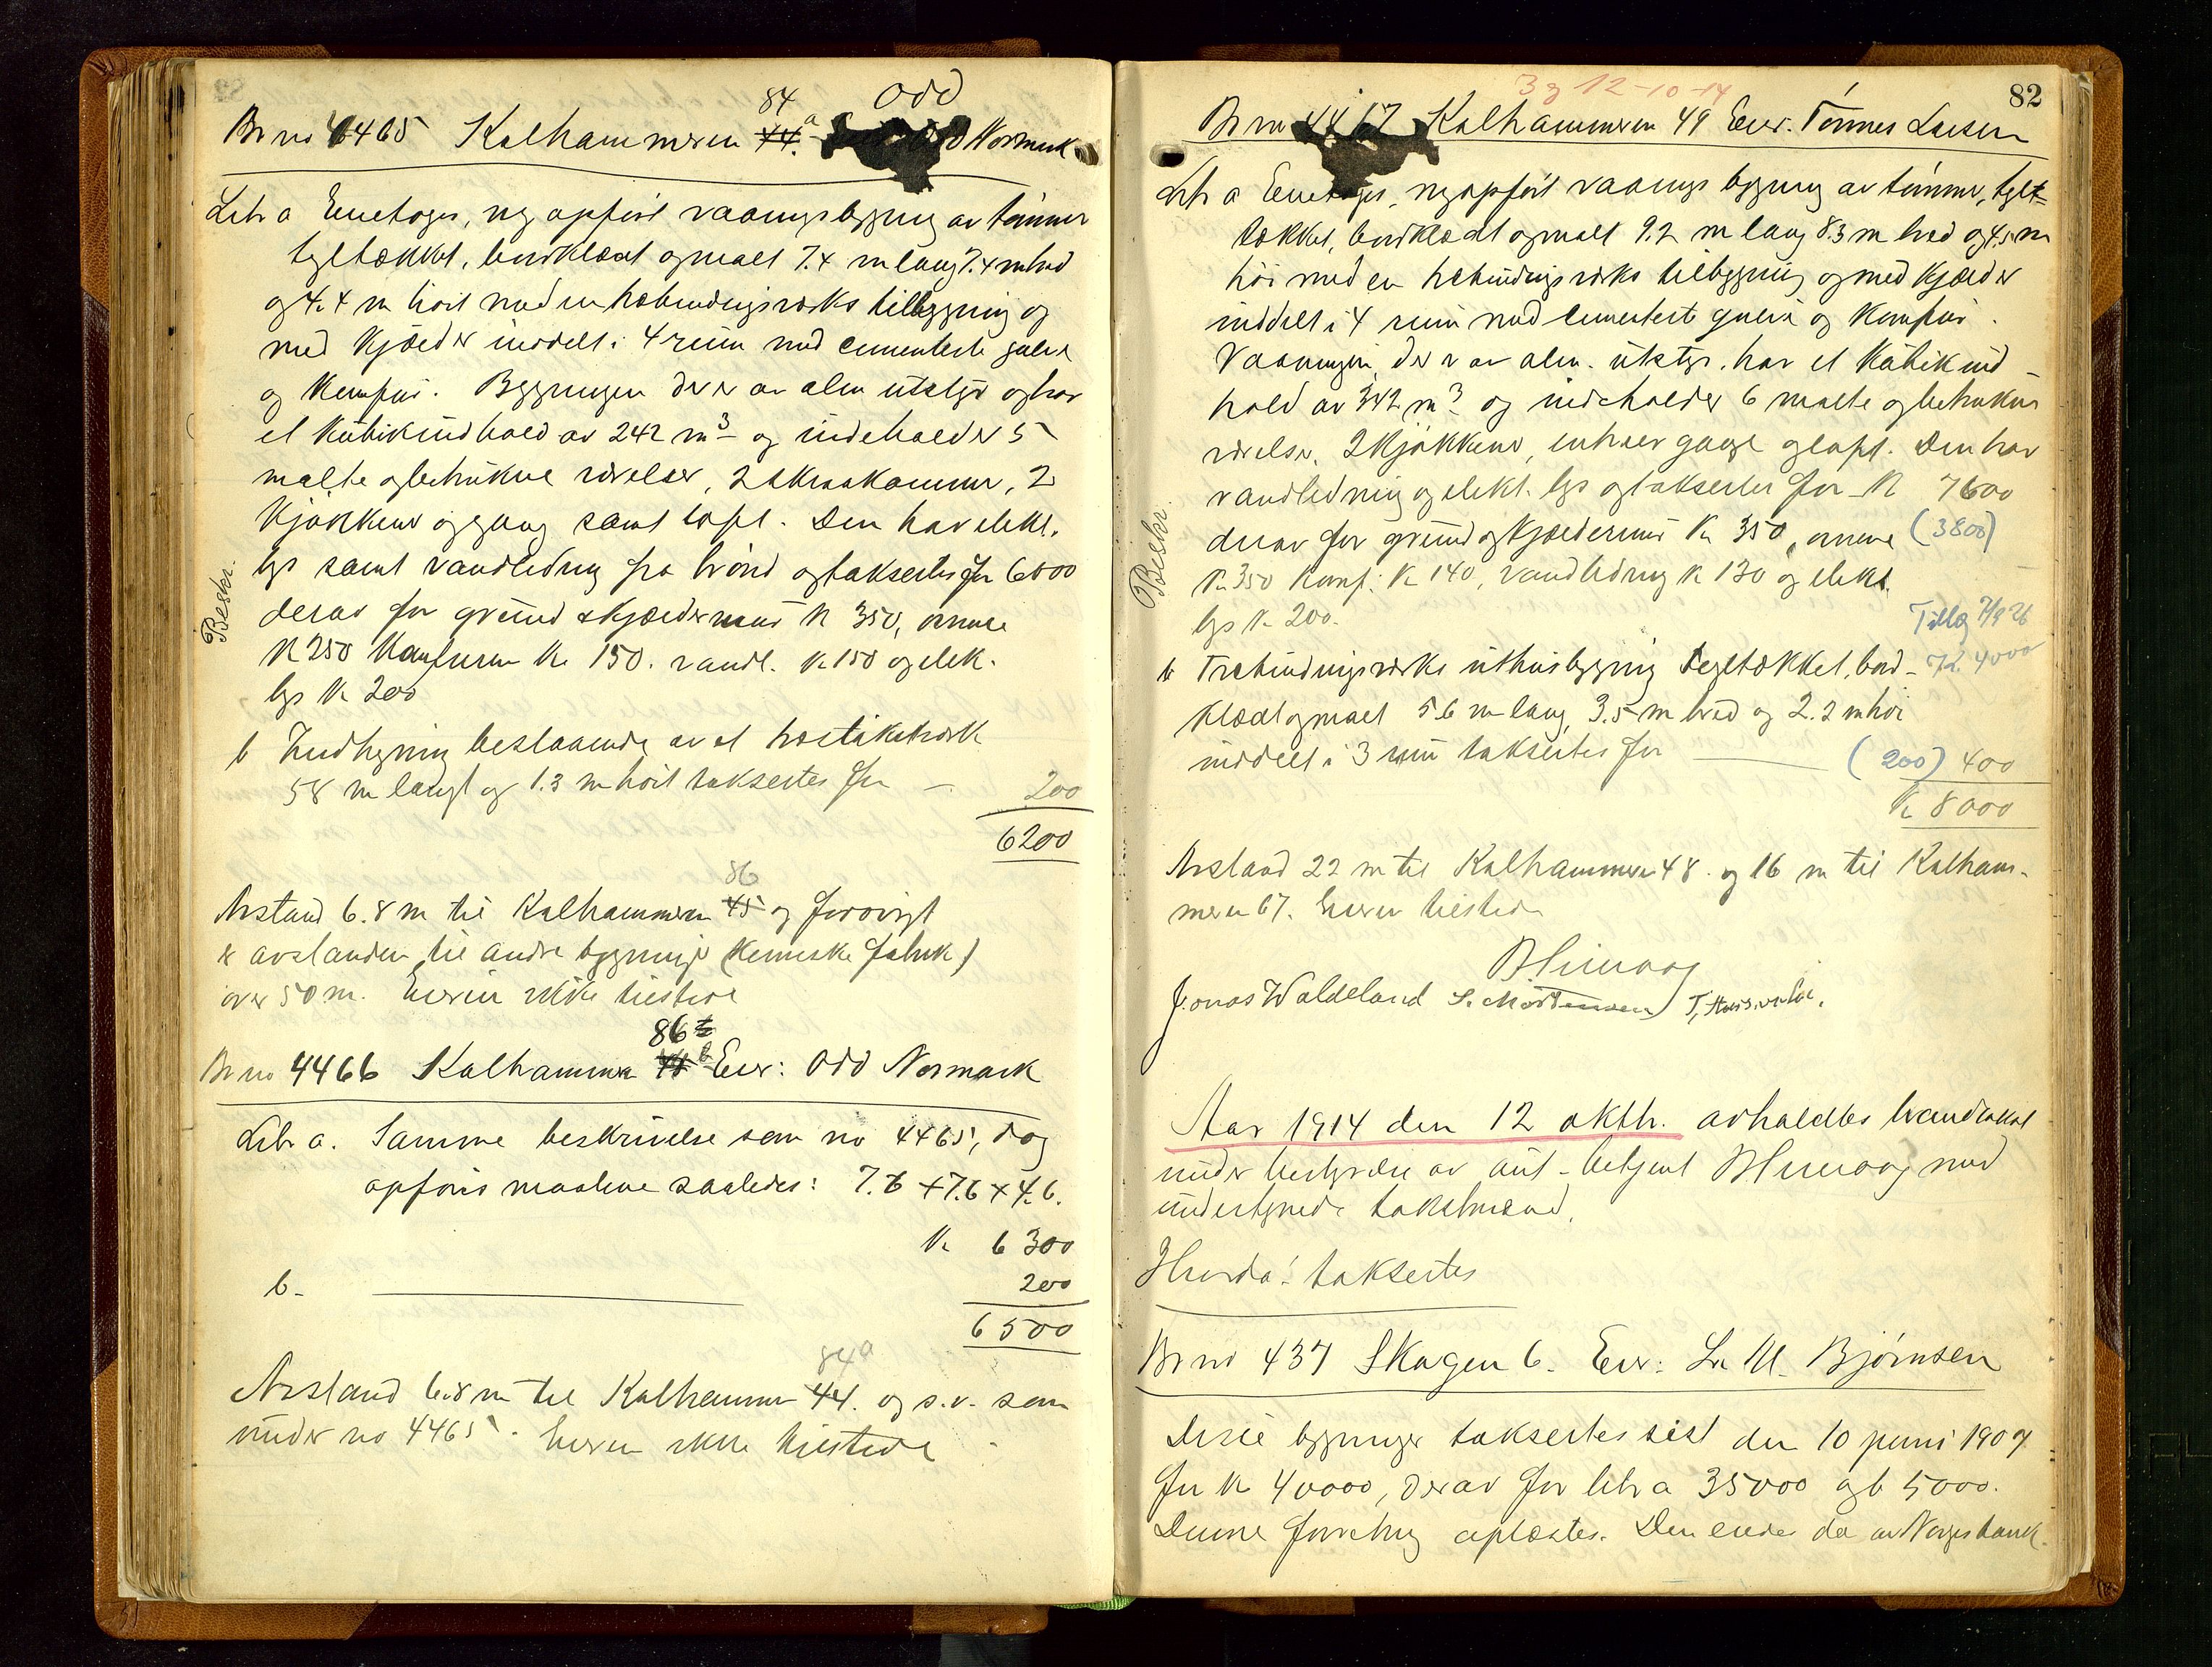 84 Odd
Br no 4465 Kalhammeren 44. a Normark
Litr a Enetages, ny opført vaaningsbygning av tømmer
tegltækket, bordklædt og malt 7.4 m lang 7.4 m bred
og 4.4 m høit med en træbindingsverks tilbygning og
med kjælder inddelt i 4 rum med cementerte gulve
og komfur. Bygningen der er av alm utstyr og har
et kubikindhold av 242 m3 og indeholder 5
malte og betrukne værelser, 2 skraakammer, 2
kjøkkener og gang samt loft. Den har elekt.
lys samt vandledning fra brønd og takseres for 6000
derav for grund & kjældermur K 350, ovnene
K 250 Komfuren K 150. vandl. K 150 og elek.
lys K 200
Beskr.
b Indhegning bestaaende av et træstakitverk
58 m langt og 1.3 m høit takseres for — 200
6200
86
Avstand 6.8 m til Kalhammeren 45 og forøvrigt
er avstanden til andre bygninger (kemiske fabrik)
over 50 m. Eieren ikke tilstede
86
Br no 4466 Kalhammeren b Eier: Odd Normark
Litr a. Samme beskrivelse som no 4465, dog
opføres maalene saaledes: 7.6 + 7.6 x 4.6.
K 6300
b. 200
6500
84a
Avstand 6.8 m til Kalhammeren 44. og s.v. som
under no 4465. Eieren ikke tilstede
3g 12-10-14
82
Br no 4467 Kalhammeren 49 Eier. Tønnes Larsen
Litr a Enetages, ny opført vaaningsbygning av tømmer, teglt-
tækket, bordklædt og malt 9.2 m lang 8.3 m bred og 4.5 m
høi med en træbindingsverks tilbygning og med kjælder
inddelt i 4 rum med cementerte gulve og komfur.
Vaaningen, der er av alm. utstyr. har et kubikind-
hold av 342 m3 og indeholder 6 malte og betrukne
værelser, 2 kjøkkener, entreer gange og loft. Den har
vandledning og elekt. lys og takseres for K 7600
derav for grund og kjældermur K 350, ovnene (3800)
K 350 Komf: K 140, vandledning K 130 og elekt.
lys K 200.
Beskr.
Tillæg 7/9 26
b Træbindingsverks uthusbygning tegltækket, bord- K. 4000
klædt og malt 5.6 m lang, 3.5 m bred og 2.2 m høi
inddelt i 3 rum takseres for (200) 400
K 8000
Avstand 22 m til Kalhammeren 48. og 16 m til Kalham-
meren 67. Eieren tilstede
Jonas Waldeland S. Mortensen
Aar 1914 den 12 oktbr. avholdtes brandtakst
under bestyrelse av aut-betjent med
undertegnede takstmænd.
Hvorda: takseres
Br no 437 Skagen 6. Eier: L. M. Bjørnsen
Disse bygninger takseres sist den 10 juni 1907
for K 40000, derav for litr a 35000 og b 5000.
Denne forretning oplæstes. Den eiedes da av Norges bank.